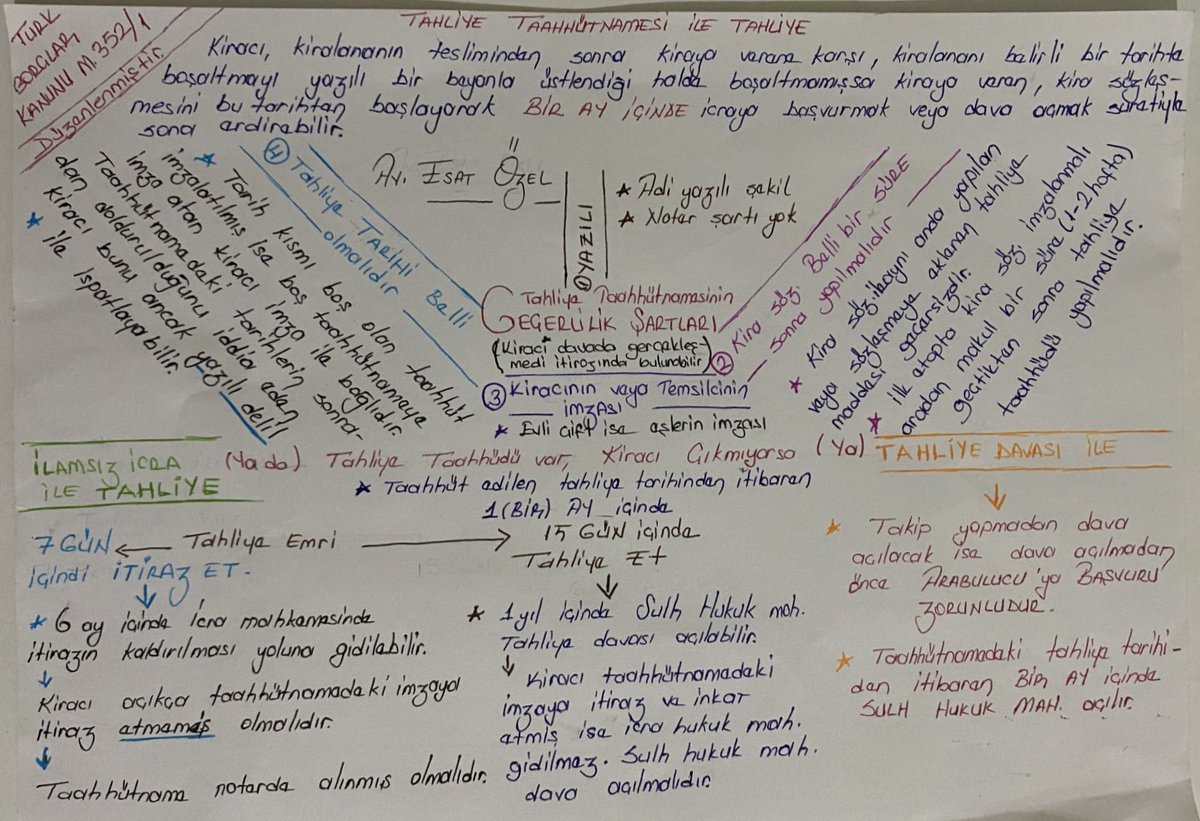 TAHLİYE TAAHHÜTNAMESİ İLE TAHLİYE
TÜRK
BORÇLAR
KANUNU M. 352/1
Düzenlenmiştir.
Kiracı, kiralananın tesliminden sonra kiraya verene karşı, kiralananı belirli bir tarihte
boşaltmayı yazılı bir beyanla üstlendiği halde boşaltmamışsa kiraya veren, kira sözleş-
mesini bu tarihten başlayarak BİR AY İÇİNDE icraya başvurmak veya dava açmak suretiyle
sona erdirebilir.
Av. ESAT ÖZEL
① YAZILI
★ Adi yazılı şekil
★ Noter şartı yok
Tahliye Taahhütnamesinin
GEÇERLİLİK ŞARTLARI
(Kiracı davada gerçekleş-
medi itirazında bulunabilir)
② Kira söz. Belli bir SÜRE
sonra yapılmalıdır
★ Kira söz. ile aynı anda yapılan
veya sözleşmeye eklenen tahliye
maddesi geçersizdir.
★ İlk etapta kira söz. imzalanmalı
aradan makul bir süre (1-2 hafta)
geçtikten sonra tahliye
taahhüdü yapılmalıdır.
③ Kiracının veya Temsilcinin
İMZASI
★ Evli çift ise eşlerin imzası
④ Tahliye TARİHİ Belli
olmalıdır
★ Tarih kısmı boş olan taahhüt
imzalatılmış ise boş taahhütnameye
imza atan kiracı imza ile bağlıdır.
Taahhütnamedeki tarihlerin sonra-
dan doldurulduğunu iddia eden
kiracı bunu ancak yazılı delil
★ ile ispatlayabilir.
İLAMSIZ İCRA
İLE TAHLİYE
(Ya da) Tahliye Taahhüdü var, Kiracı Çıkmıyorsa (Ya)
TAHLİYE DAVASI İLE
★ Taahhüt edilen tahliye tarihinden itibaren
1 (BİR) AY içinde
7 GÜN ← Tahliye Emri → 15 GÜN içinde
içindi İTİRAZ ET.
Tahliye Et
★ 6 ay içinde İcra mahkemesinde
itirazın kaldırılması yoluna gidilebilir.
↓
Kiracı açıkça taahhütnamedeki imzaya
itiraz etmemiş olmalıdır.
↓
Taahhütname noterde alınmış olmalıdır.
★ 1 yıl içinde Sulh Hukuk mah.
Tahliye davası açılabilir.
↓ Kiracı taahhütnamedeki
imzaya itiraz ve inkar
etmiş ise icra hukuk mah.
gidilmez. Sulh hukuk mah.
dava açılmalıdır.
★ Takip yapmadan dava
açılacak ise dava açılmadan
önce ARABULUCU'ya BAŞVURU
ZORUNLUDUR.
★ Taahhütnamedeki tahliye tarihi-
den itibaren BİR AY içinde
SULH HUKUK MAH. açılır.